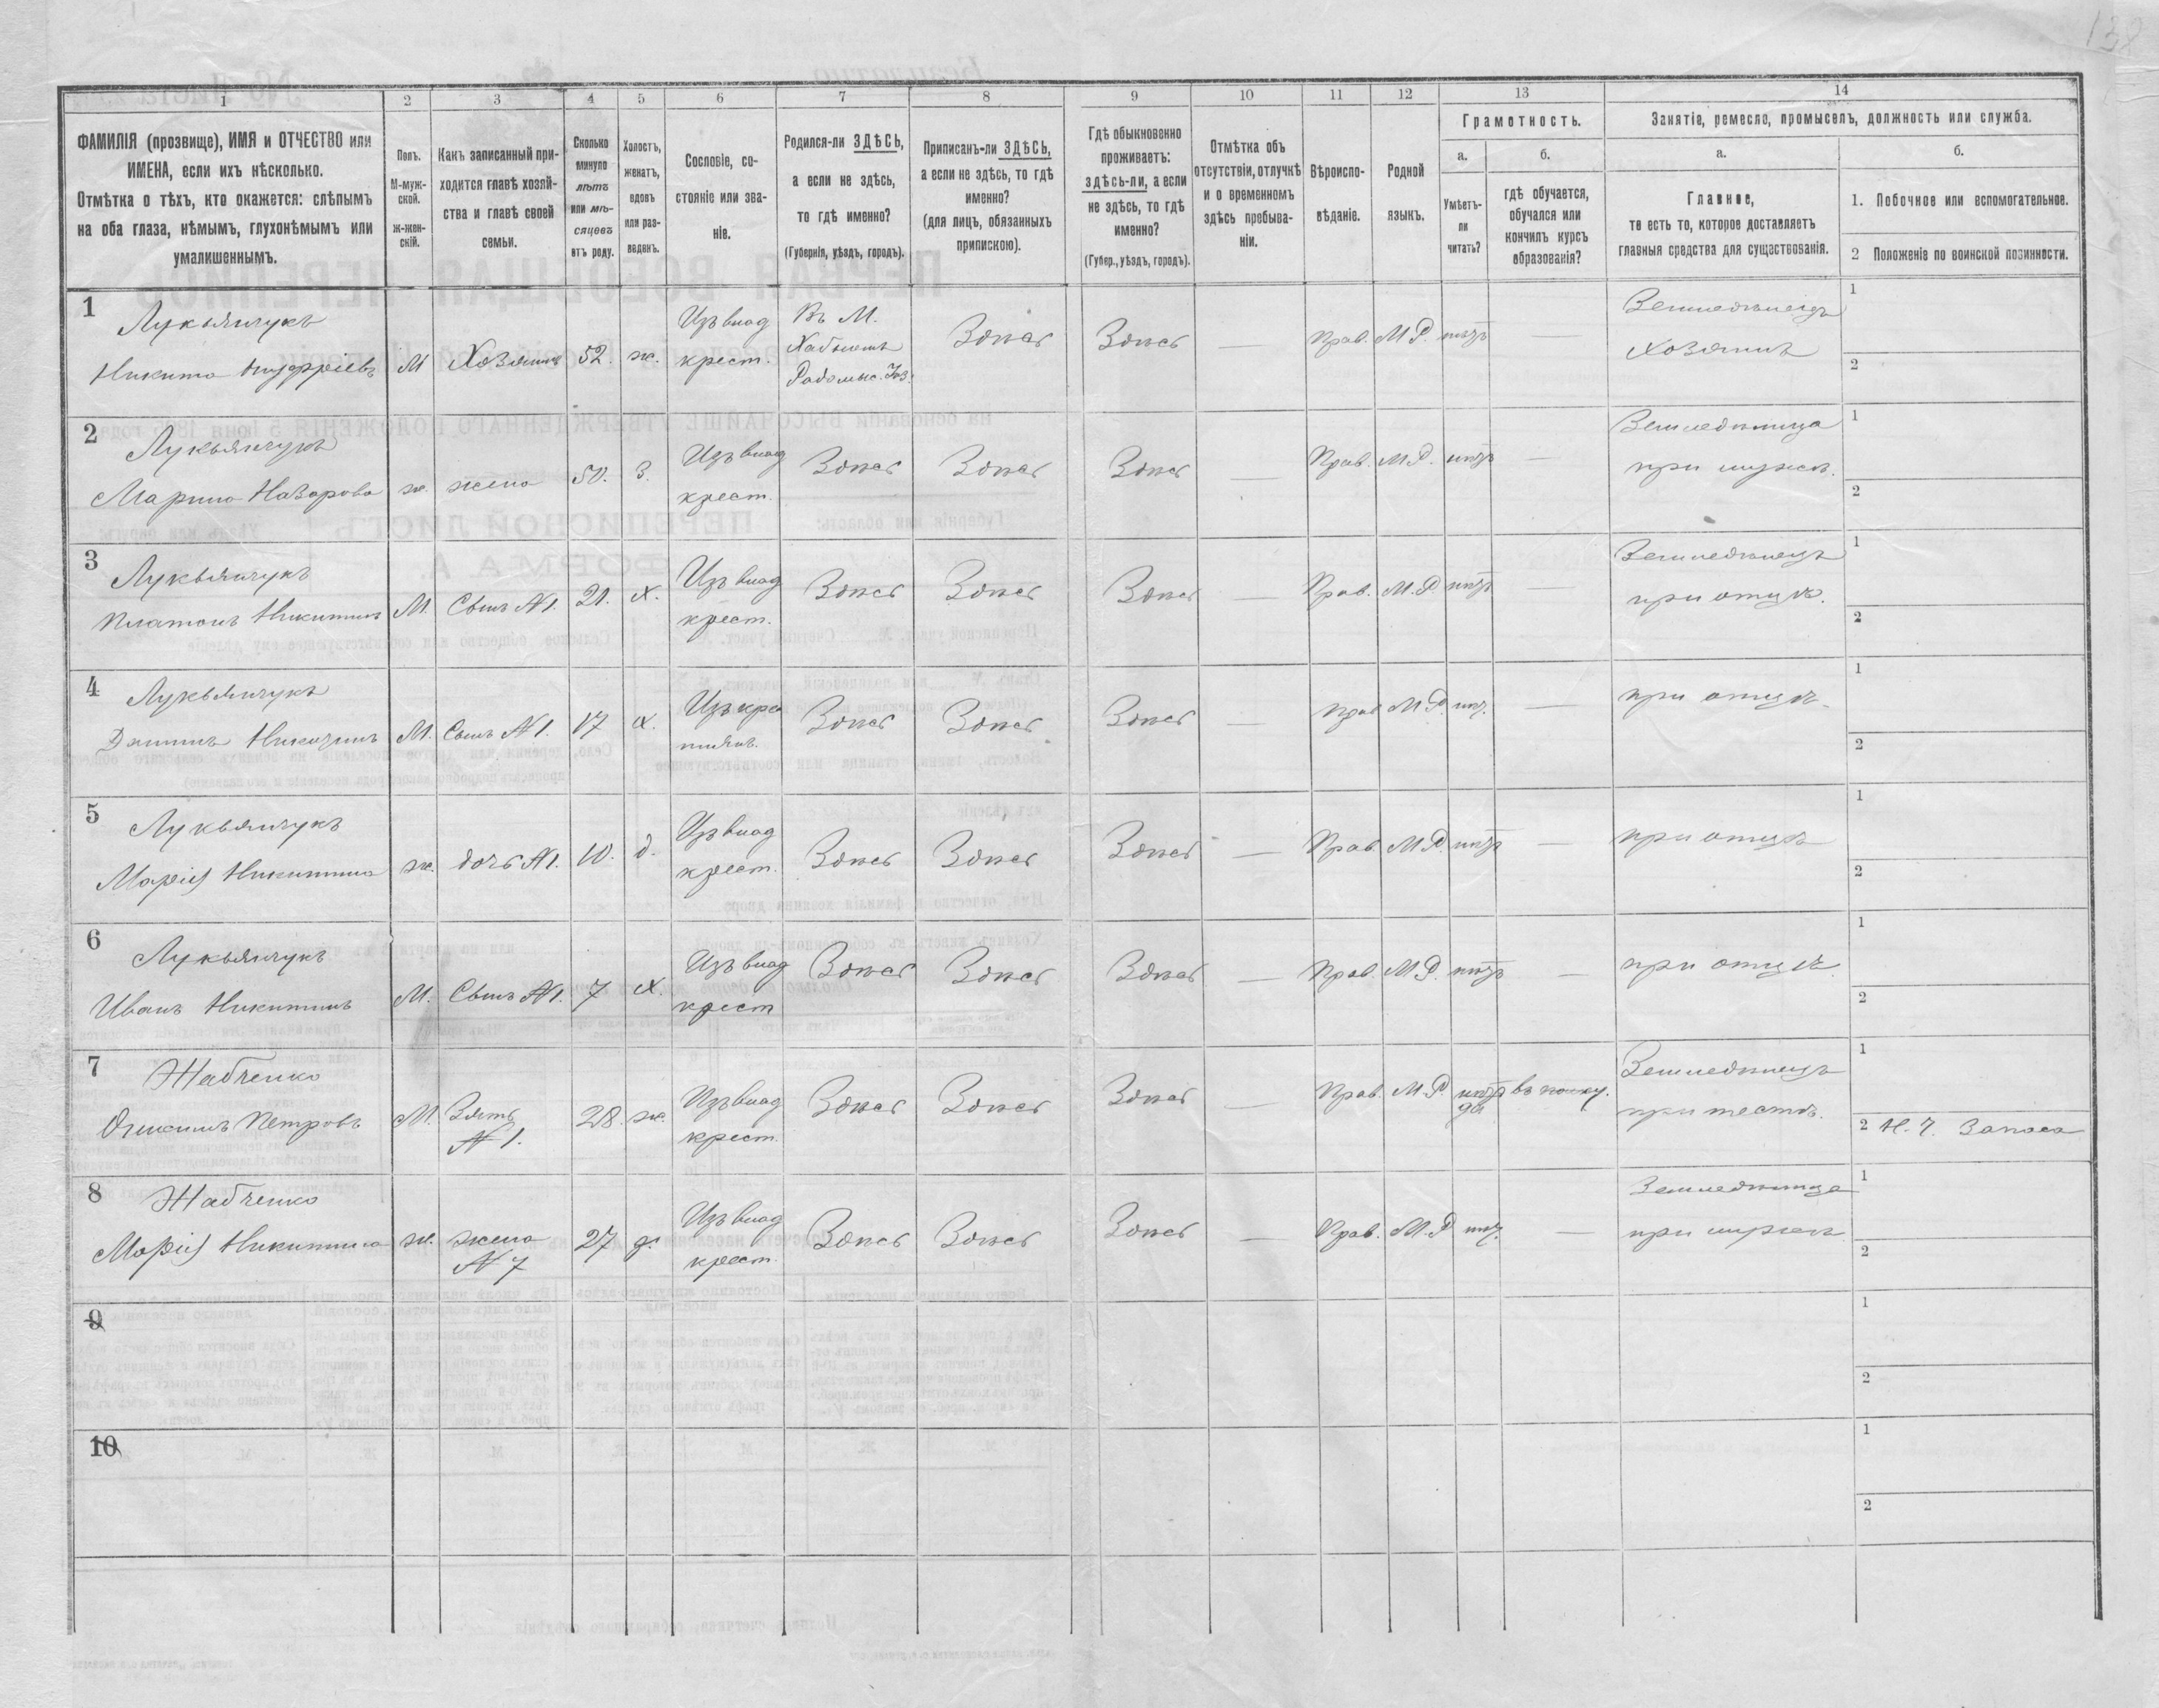 138
1
2
3
4
5
6
7
8
9
10
11
12
13
14
ФАМИЛІЯ (прозвище), ИМЯ и ОТЧЕСТВО или
ИМЕНА, если ихъ нѣсколько.
Отмѣтка о тѣхъ, кто окажется: слѣпымъ
на оба глаза, нѣмымъ, глухонѣмымъ или
умалишеннымъ.
Полъ.
М-муж-
ской.
Ж-жен-
скій.
Какъ записанный при-
ходится главѣ хозяй-
ства и главѣ своей
семьи.
Сколько
минуло
лѣтъ
или мѣ-
сяцевъ
отъ роду.
Холостъ,
женатъ,
вдовъ
или раз-
веденъ.
Сословіе, со-
стояніе или зва-
ніе.
Родился-ли ЗДѢСЬ,
а если не здѣсь,
то гдѣ именно?
(Губернія, уѣздъ, городъ).
Приписанъ-ли ЗДѢСЬ,
а если не здѣсь, то гдѣ
именно?
(для лицъ, обязанныхъ
припискою).
Гдѣ обыкновенно
проживаетъ:
здѣсь-ли, а если
не здѣсь, то гдѣ
именно?
(Губер., уѣздъ, городъ).
Отмѣтка объ
отсутствіи, отлучкѣ
и о временномъ
здѣсь пребыва-
ніи.
Вѣроиспо-
вѣданіе.
Родной
языкъ.
Грамотность.
а.
Умѣетъ-
ли
читать?
б.
гдѣ обучается,
обучался или
кончилъ курсъ
образованія?
Занятіе, ремесло, промыселъ, должность или служба.
а.
Главное,
то есть то, которое доставляетъ
главныя средства для существованія.
б.
1. Побочное или вспомогательное.
2 Положеніе по воинской повинности.
1
Лукьянчукъ
Никита Андріевъ
М
Хозяинъ
52.
ж.
Изъ влад
крест.
Въ М.
Хабномъ
Радомыс.
Здѣсь
Здѣсь
—
Прав.
М Р.
нѣтъ
—
Земледѣлецъ
хозяинъ
1
2
2
Лукьянчукъ
Марина Назарова
ж.
жена
50.
З.
Изъ влад
крест.
Здѣсь
Здѣсь
Здѣсь
—
Прав.
М Р.
нѣтъ
—
Земледѣлица
при мужѣ.
1
2
3
Лукьянчукъ
Платонъ Никитинъ
М.
Сынъ №1.
21.
х.
Изъ влад
крест.
Здѣсь
Здѣсь
Здѣсь
—
Прав.
М.Р.
нѣтъ
—
Земледѣлецъ
при отцѣ.
1
2
4
Лукьянчукъ
Никитинъ
М.
Сынъ №1.
17
х.
Изъ кре
Здѣсь
Здѣсь
Здѣсь
—
Прав
М Р.
нѣт.
—
при отцѣ.
1
2
5
Лукьянчукъ
Марія Никитина
ж.
дочь №1.
10.
д.
Изъ влад
крест.
Здѣсь
Здѣсь
Здѣсь
—
Прав
М Р.
нѣтъ
—
при отцѣ
1
2
6
Лукьянчукъ
Иванъ Никитинъ
М.
Сынъ №1.
7
х.
Изъ влад
крест
Здѣсь
Здѣсь
Здѣсь
—
Прав.
М Р.
нѣтъ
—
при отцѣ.
1
2
7
Жабченко
Петровъ
М.
Зять
№1.
28.
ж.
Изъ влад
крест.
Здѣсь
Здѣсь
Здѣсь
—
Прав.
М Р.
нѣтъ
да
въ полку.
Земледѣлецъ
при тестѣ.
1
2 Н. Ч. Запаса
8
Жабченко
Марія Никитина
ж.
жена
№7
27
Изъ влад
крест.
Здѣсь
Здѣсь
Здѣсь
—
Прав.
М.Р
нѣт.
—
Земледѣлица
при мужѣ
1
2
9
1
2
10
1
2